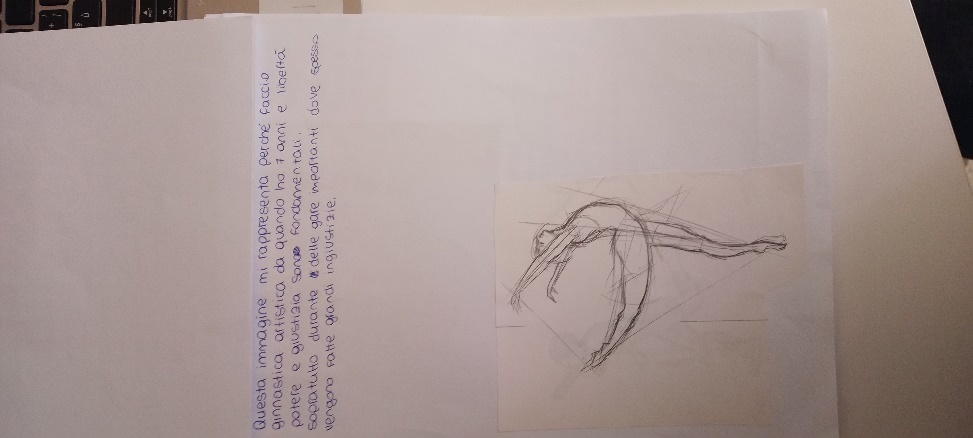 Questa immagine mi rappresenta perché faccio
ginnastica artistica da quando ho 7 anni e libertà
potere e giustizia sono fondamentali.
sopratutto durante delle gare importanti dove spesso
vengono fatte grandi ingiustizie.